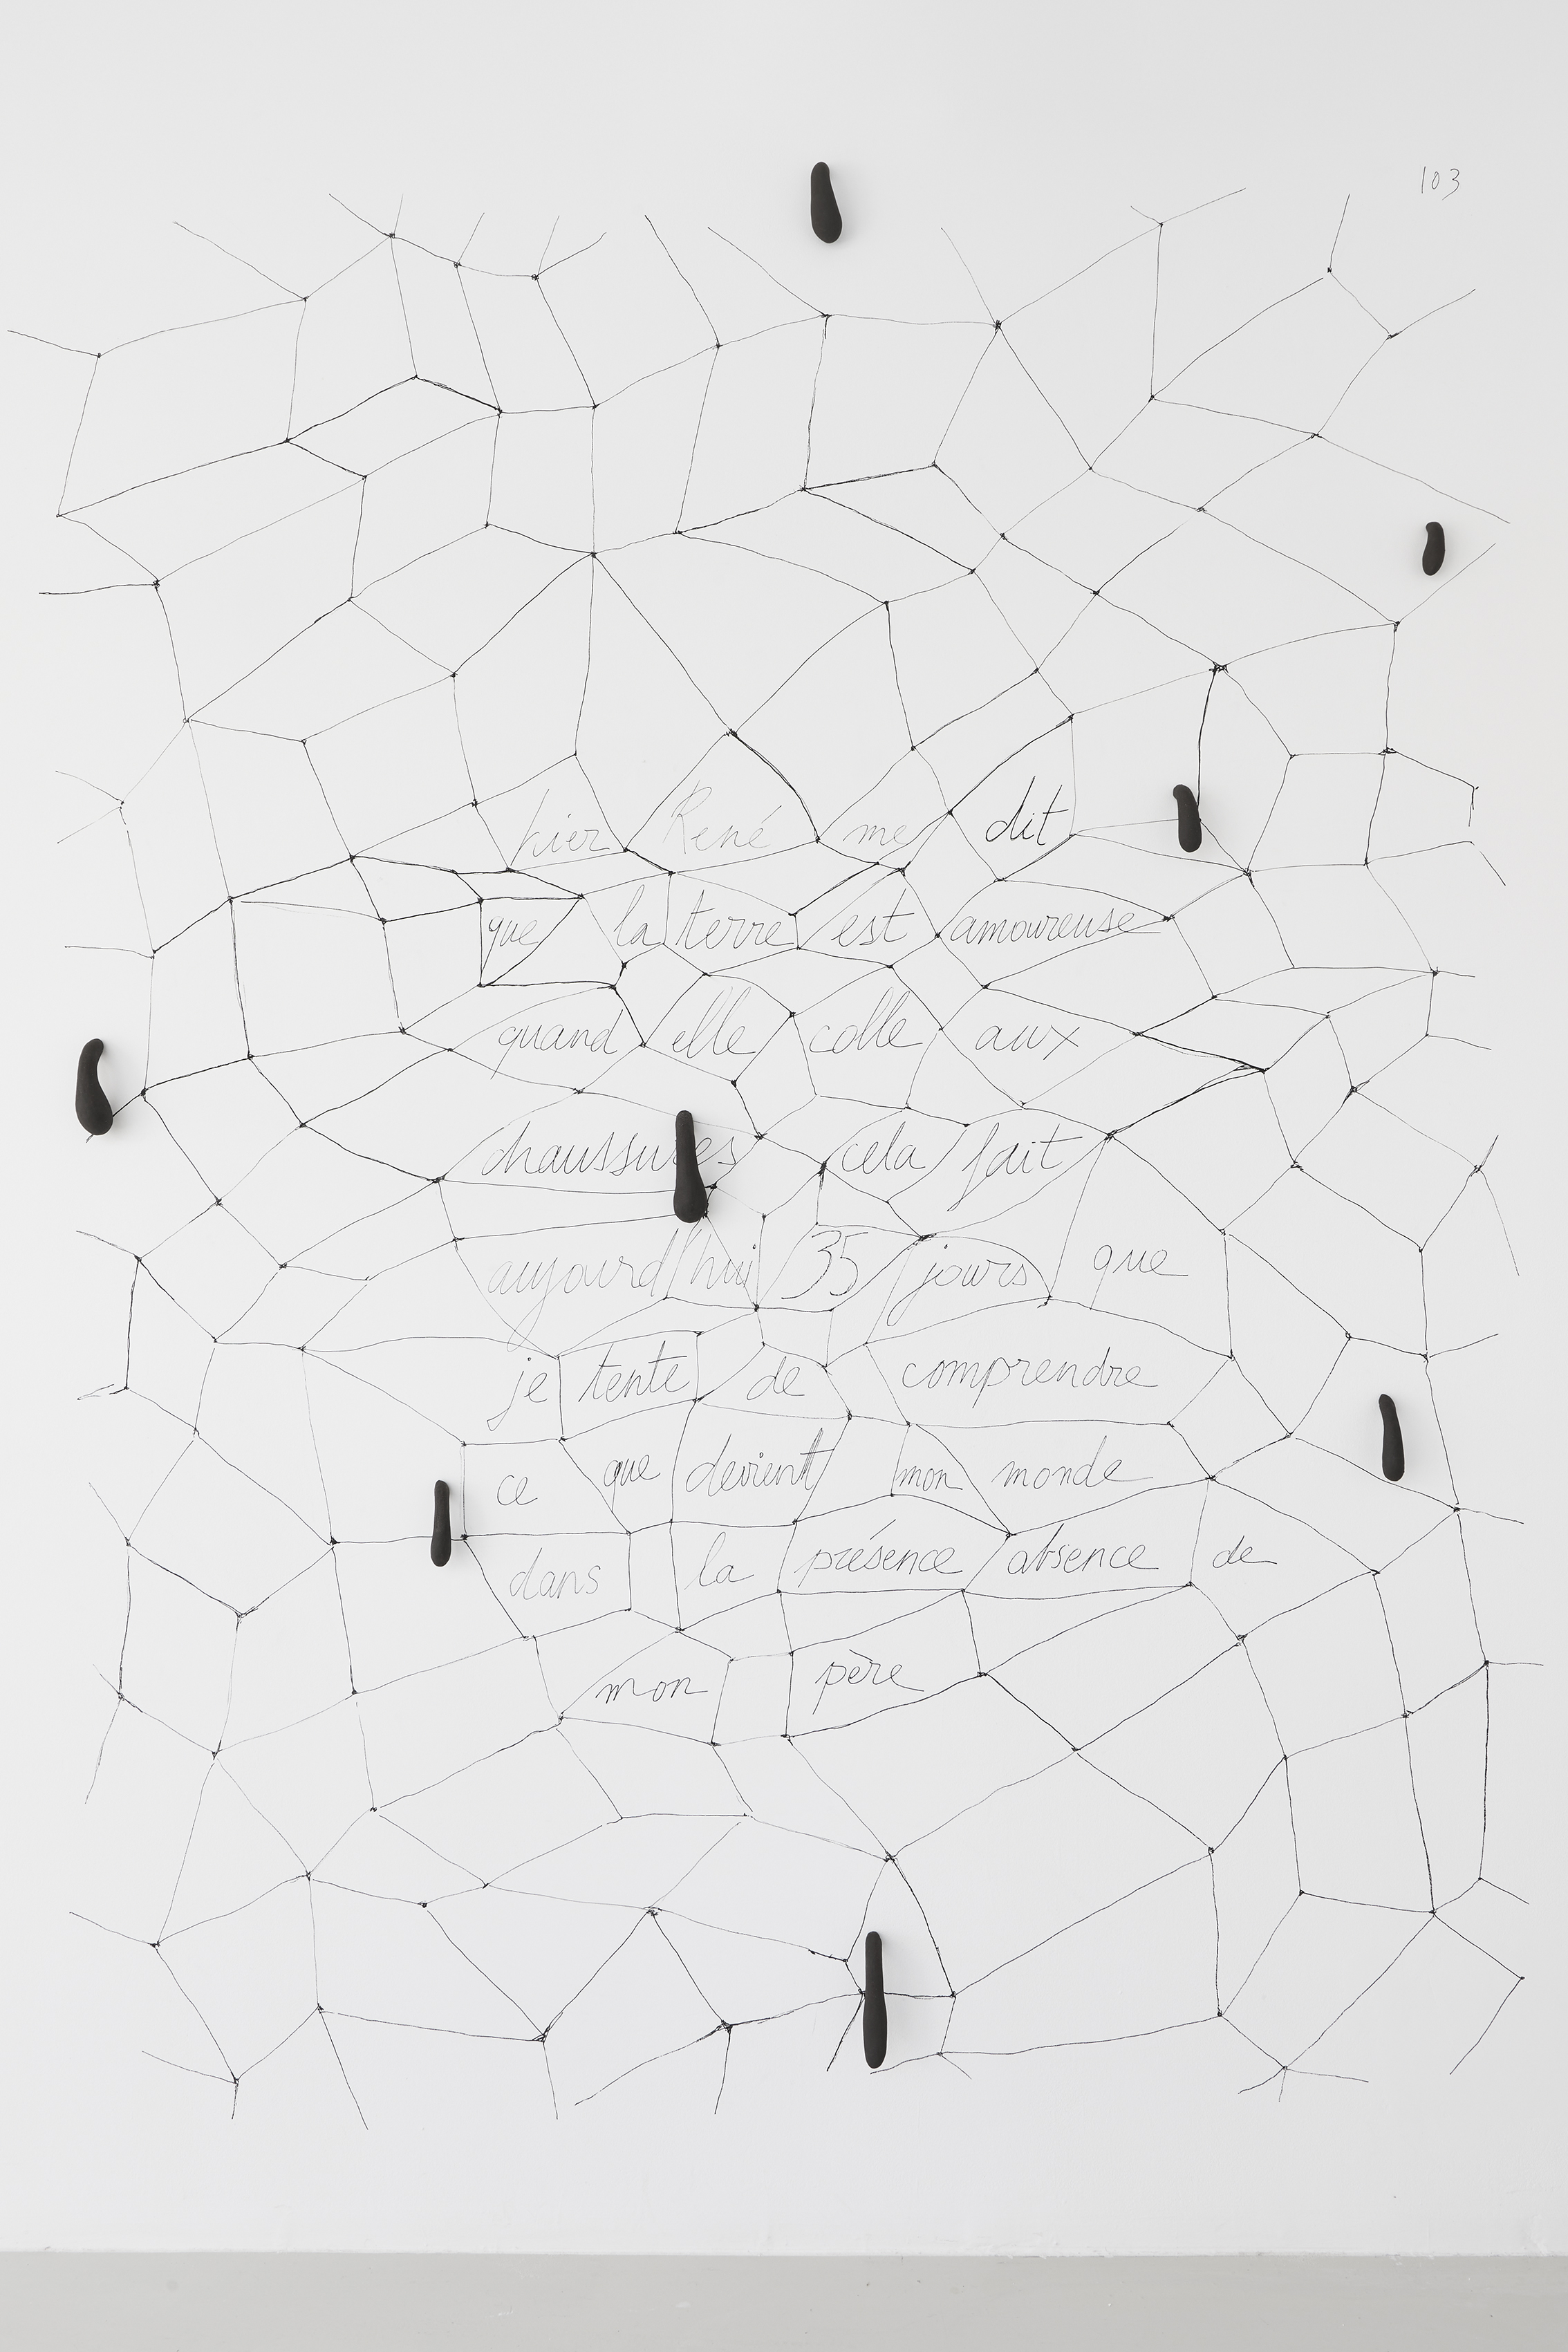 103
hier René me dit
que la terre est amoureuse
quand elle colle aux
chaussures cela fait
aujourd'hui 35 jours que
je tente de comprendre
ce que devient mon monde
dans la présence absence de
mon père